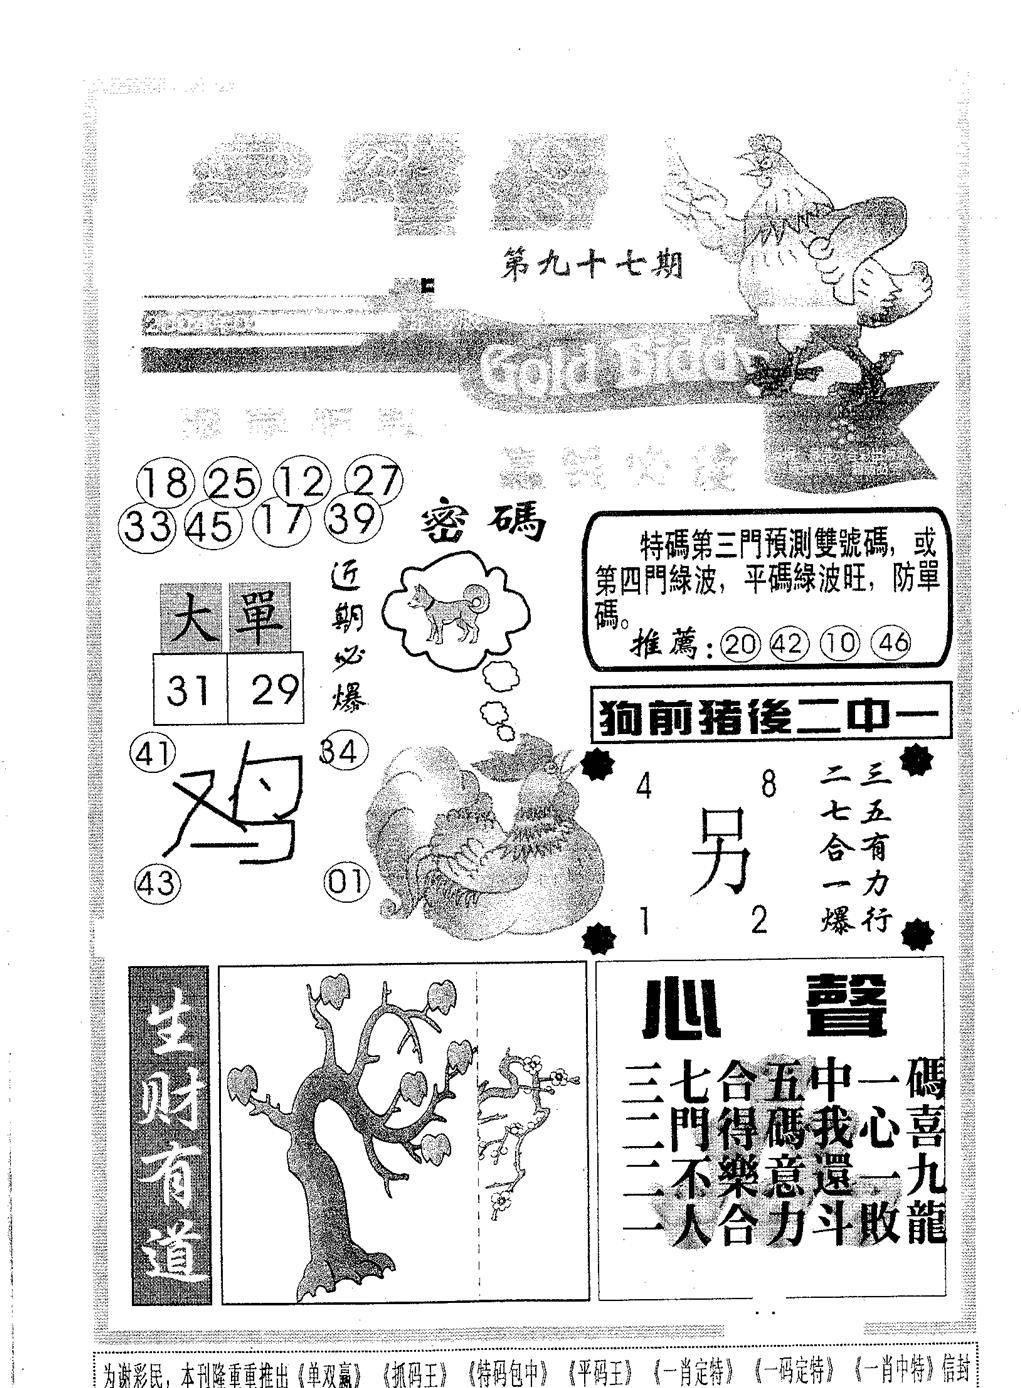 第九十七期
Gold Biddy
18 25 12 27
33 45 17 39
密碼
近期必爆
大單
31 29
41 34
鸡
43 01
特碼第三門預測雙號碼，或
第四門綠波，平碼綠波旺，防單
碼。
推薦：20 42 10 46
狗前豬後二中一
4 8
另
1 2
三五有力行
二七合一爆
生财有道
心聲
三七合五中一碼
二門得碼我心喜
二不樂意還一九
一人合力斗敗龍
为谢彩民，本刊隆重重推出《单双赢》《抓码王》《特码包中》《平码王》《一肖定特》《一码定特》《一肖中特》信封